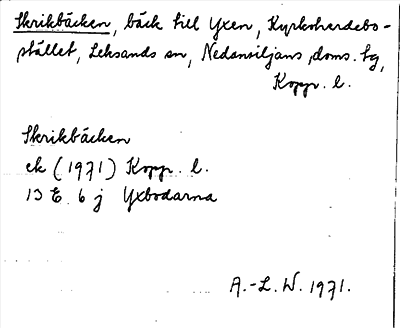 Skrikbäcken, bäck till Yxen, Kyrkoherdebo-
stället, Leksands sn, Nedansiljans doms. tg,
Kopp. l.
Skrikbäcken
ek (1971) Kopp. l.
13 E 6 j Yxbodarna
A.-L. W. 1971.